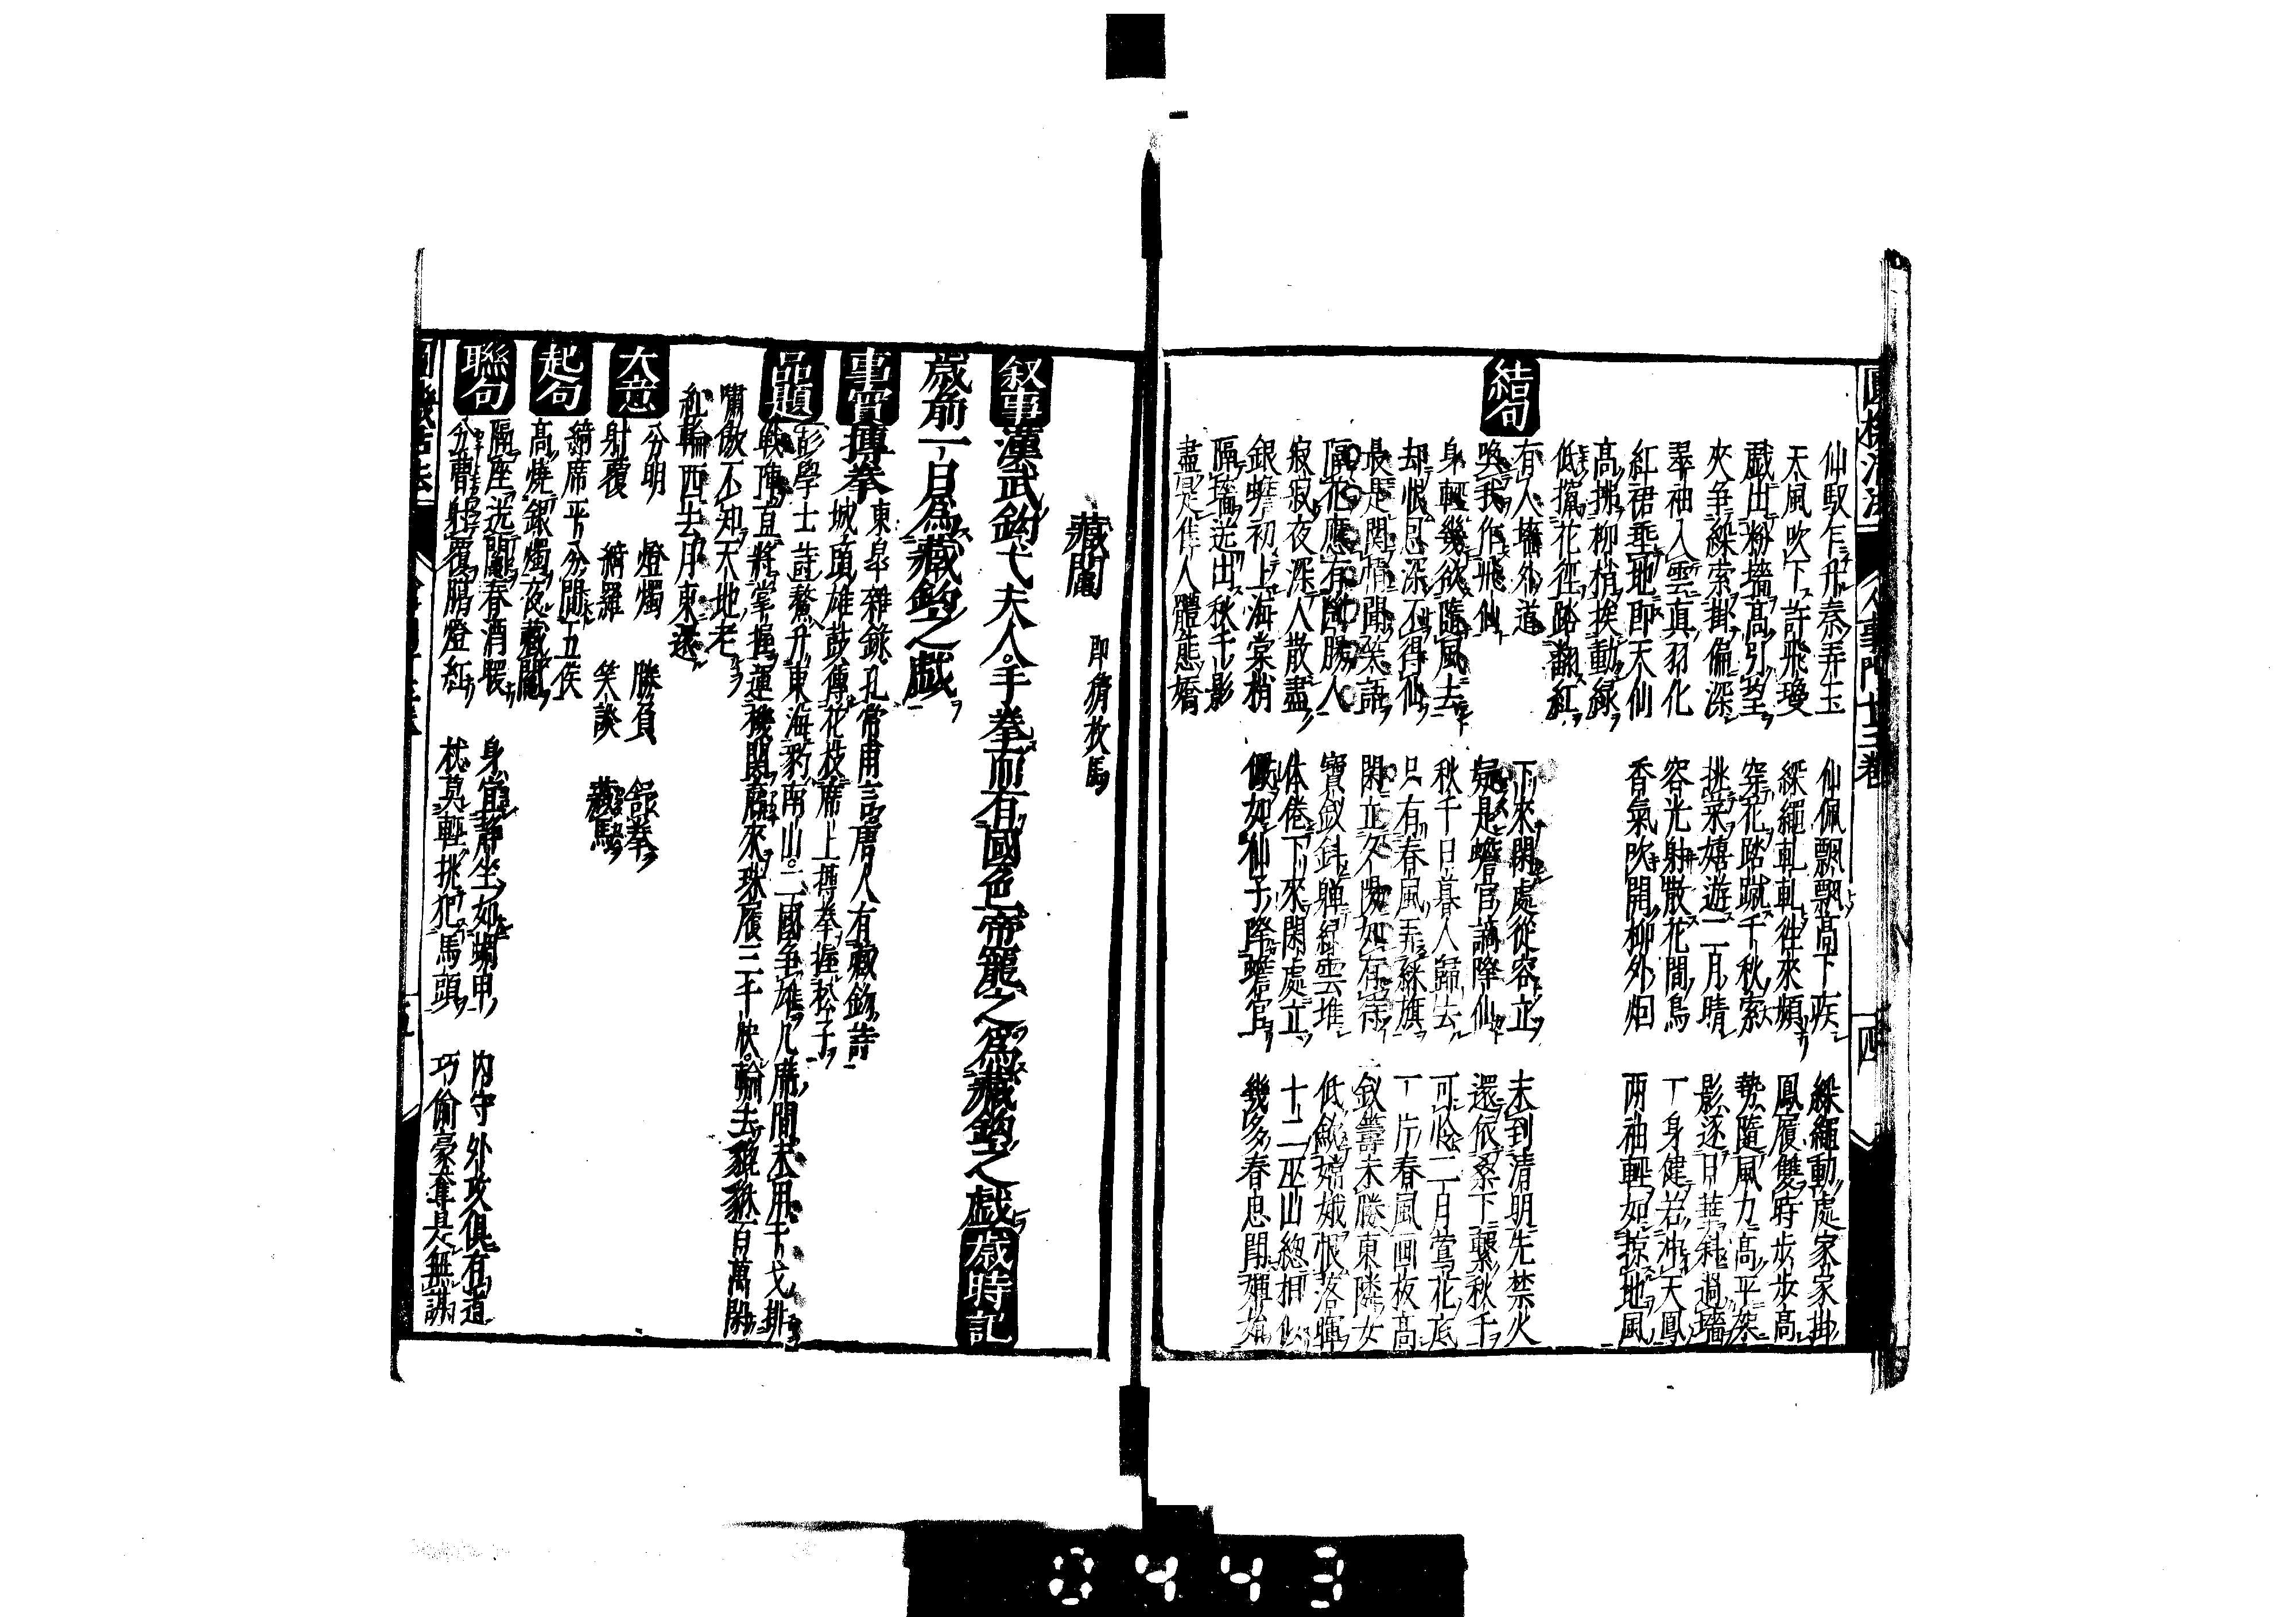 仙馭乍升秦弄玉　仙佩飄飄高下疾　綵繩動處家家掛
天風吹下許飛瓊　綵繩軋軋往來頻　鳳履雙時步步高
戲出粉墻高引望　穿花踏蹴千秋索　勢隨風力高平架
夾爭綵索掛偏深　挑菜嬉遊二月晴　影逐日華斜過墻
翠袖入雲真羽化　容光射散花間鳥　一身健若沖天鳳
紅裙垂地即天仙　香氣吹開柳外烟　两袖輕如掠地風
高拂柳梢挨動綠
低攛花徑踏翻紅
結句
有人墻外道　下來閑處從容立　未到清明先禁火
喚我作飛仙　疑是蟾宮謫降仙　還依桑下繫秋千
身輕幾欲隨風去　秋千日暮人歸去　可憐二月鶯花底
却恨恩深不得仙　只有春風弄綵旗　一片春風画板高
最是関情聞笑語　閑立多時如有待　釵籌未勝東隣女
隔花應有斷腸人　寶釵斜軃綠雲堆　低歛嫦娥恨落暉
寂寂夜深人散盡　体倦下來閑處立　十二巫山總相似
銀蟾初上海棠梢　儼如仙子降蟾宮　幾多春思
隔墻送出秋千影
盡是佳人體態嬌
藏鬮　即猜枚馬
叙事　漢武鈎弋夫人手拳而有國色帝寵之爲藏鈎之戯　歲時記
歲前一日爲藏鈎之戯
事實　摶拳　東皐雜錄孔常甫言唐人有藏鈎詩
城頭雄鼓傳花枝席上摶拳握松子
品題　彭學士詩鰲升東海豹南山二國爭雄几席間未用干戈排
戰陣直將掌握運機関贏來珠履三千快輸去貔貅百萬閑
嘯傲不知天地老
紅輪西去月東還
大意　分明　燈燭　勝負　拳
射覆　綺羅　笑談　藏
起句　綺席平分間五侯
高燒銀燭夜藏鬮
聯句　隔座送鬮春酒暖　身當靜坐如蜩甲　内守外攻俱有道
分曹射覆臈燈紅　枚莫輕挑犯馬頭　巧偷豪奪是無謀
0443